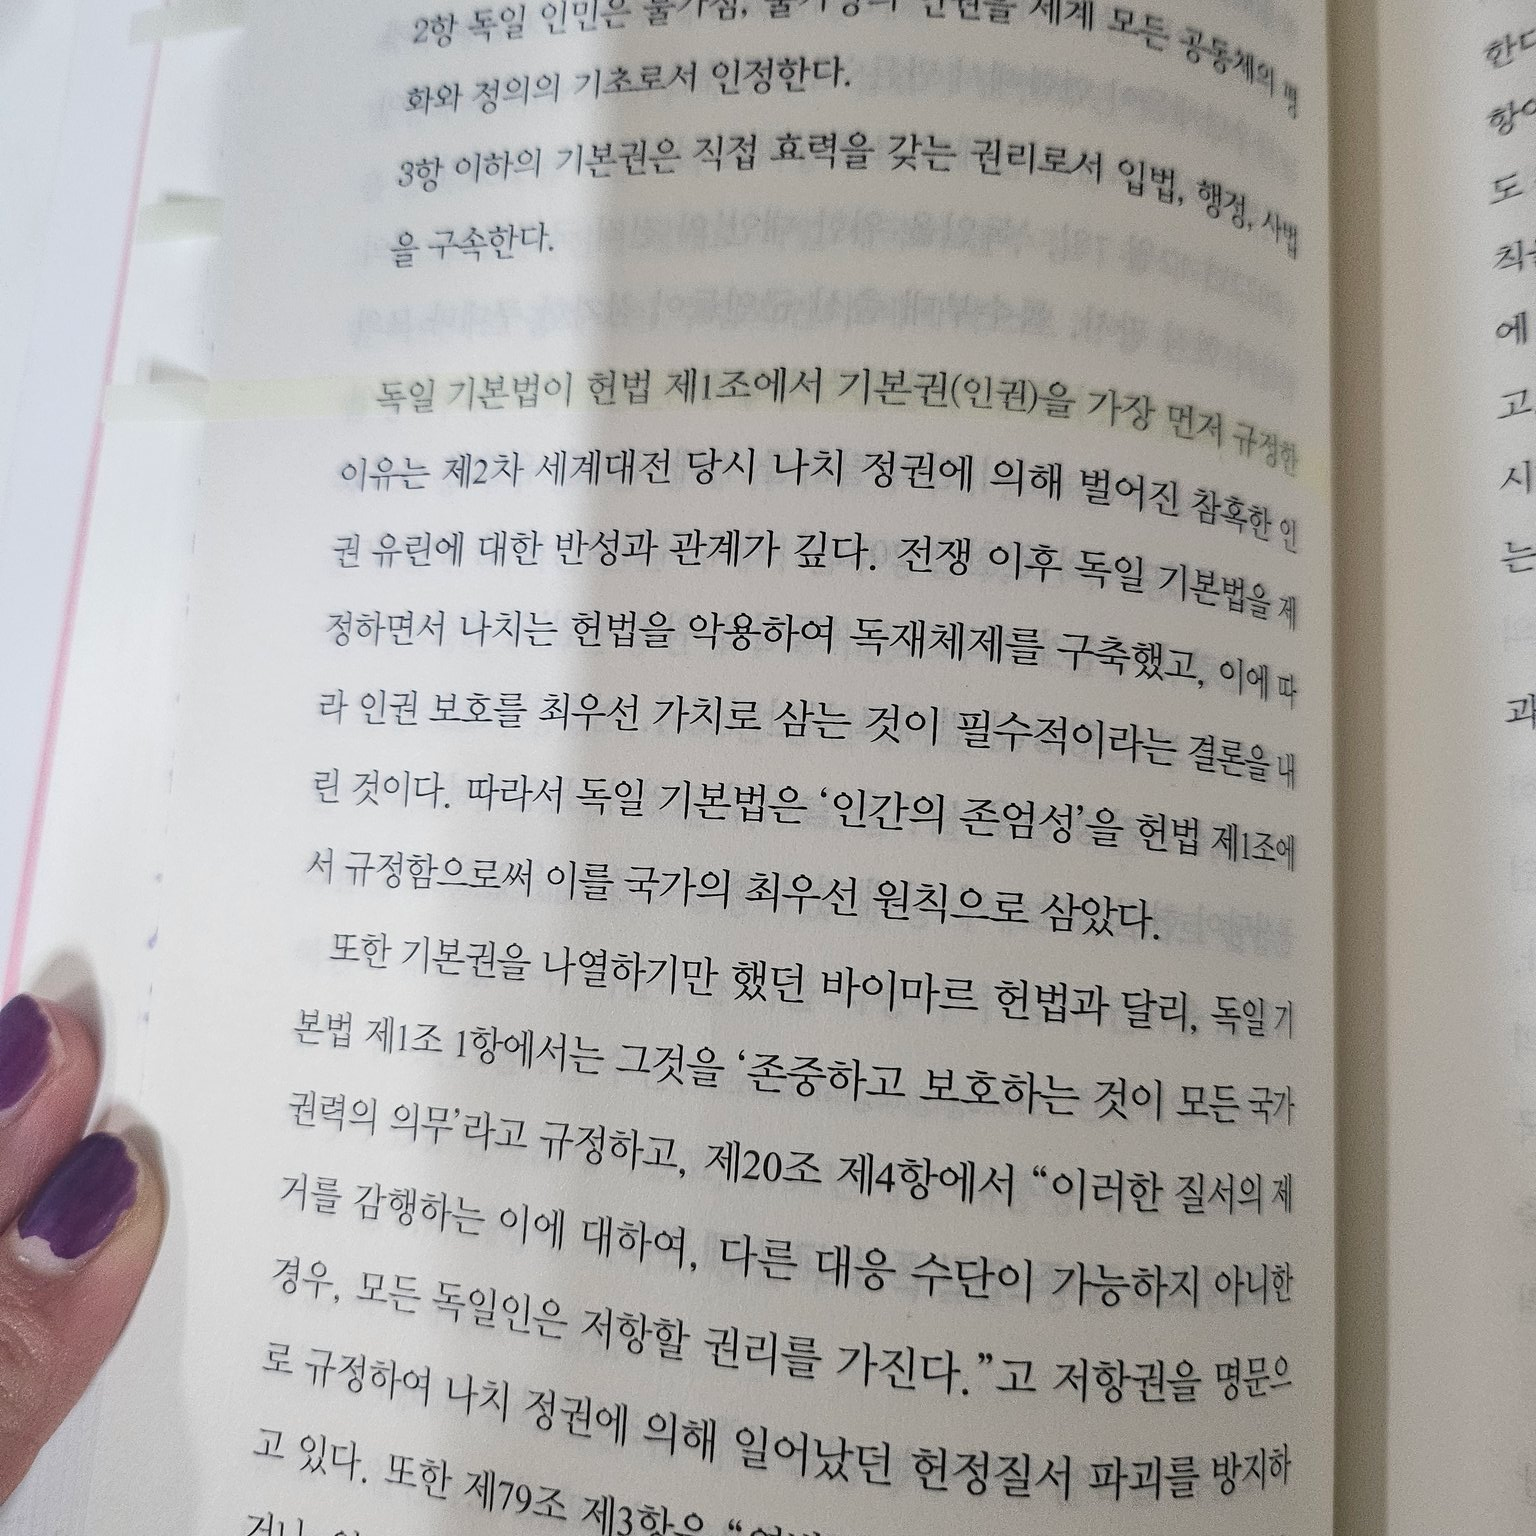 2항 독일 인민은 불가침, 불가양의 인권을 세계 모든 공동체의 평
화와 정의의 기초로서 인정한다.
3항 이하의 기본권은 직접 효력을 갖는 권리로서 입법, 행정, 사법
을 구속한다.
독일 기본법이 헌법 제1조에서 기본권(인권)을 가장 먼저 규정한
이유는 제2차 세계대전 당시 나치 정권에 의해 벌어진 참혹한 인
권 유린에 대한 반성과 관계가 깊다. 전쟁 이후 독일 기본법을 제
정하면서 나치는 헌법을 악용하여 독재체제를 구축했고, 이에 따
라 인권 보호를 최우선 가치로 삼는 것이 필수적이라는 결론을 내
린 것이다. 따라서 독일 기본법은 ‘인간의 존엄성’을 헌법 제1조에
서 규정함으로써 이를 국가의 최우선 원칙으로 삼았다.
또한 기본권을 나열하기만 했던 바이마르 헌법과 달리, 독일 기
본법 제1조 1항에서는 그것을 ‘존중하고 보호하는 것이 모든 국가
권력의 의무’라고 규정하고, 제20조 제4항에서 “이러한 질서의 제
거를 감행하는 이에 대하여, 다른 대응 수단이 가능하지 아니한
경우, 모든 독일인은 저항할 권리를 가진다.”고 저항권을 명문으
로 규정하여 나치 정권에 의해 일어났던 헌정질서 파괴를 방지하
고 있다. 또한 제79조 제3항은
한다
항이
도
칙을
에
고
시
는
과